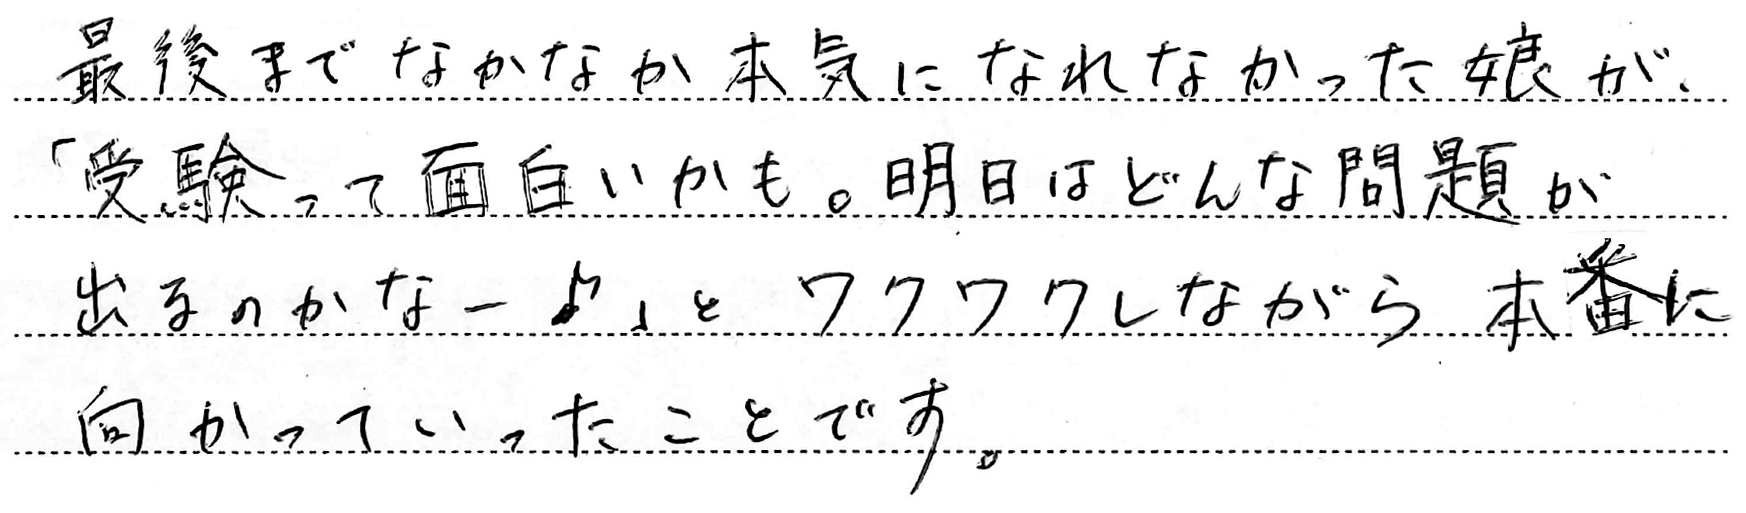 最後までなかなか本気になれなかった娘が、
「受験って面白いかも。明日はどんな問題が
出るのかなー♪」とワクワクしながら本番に
向かっていったことです。